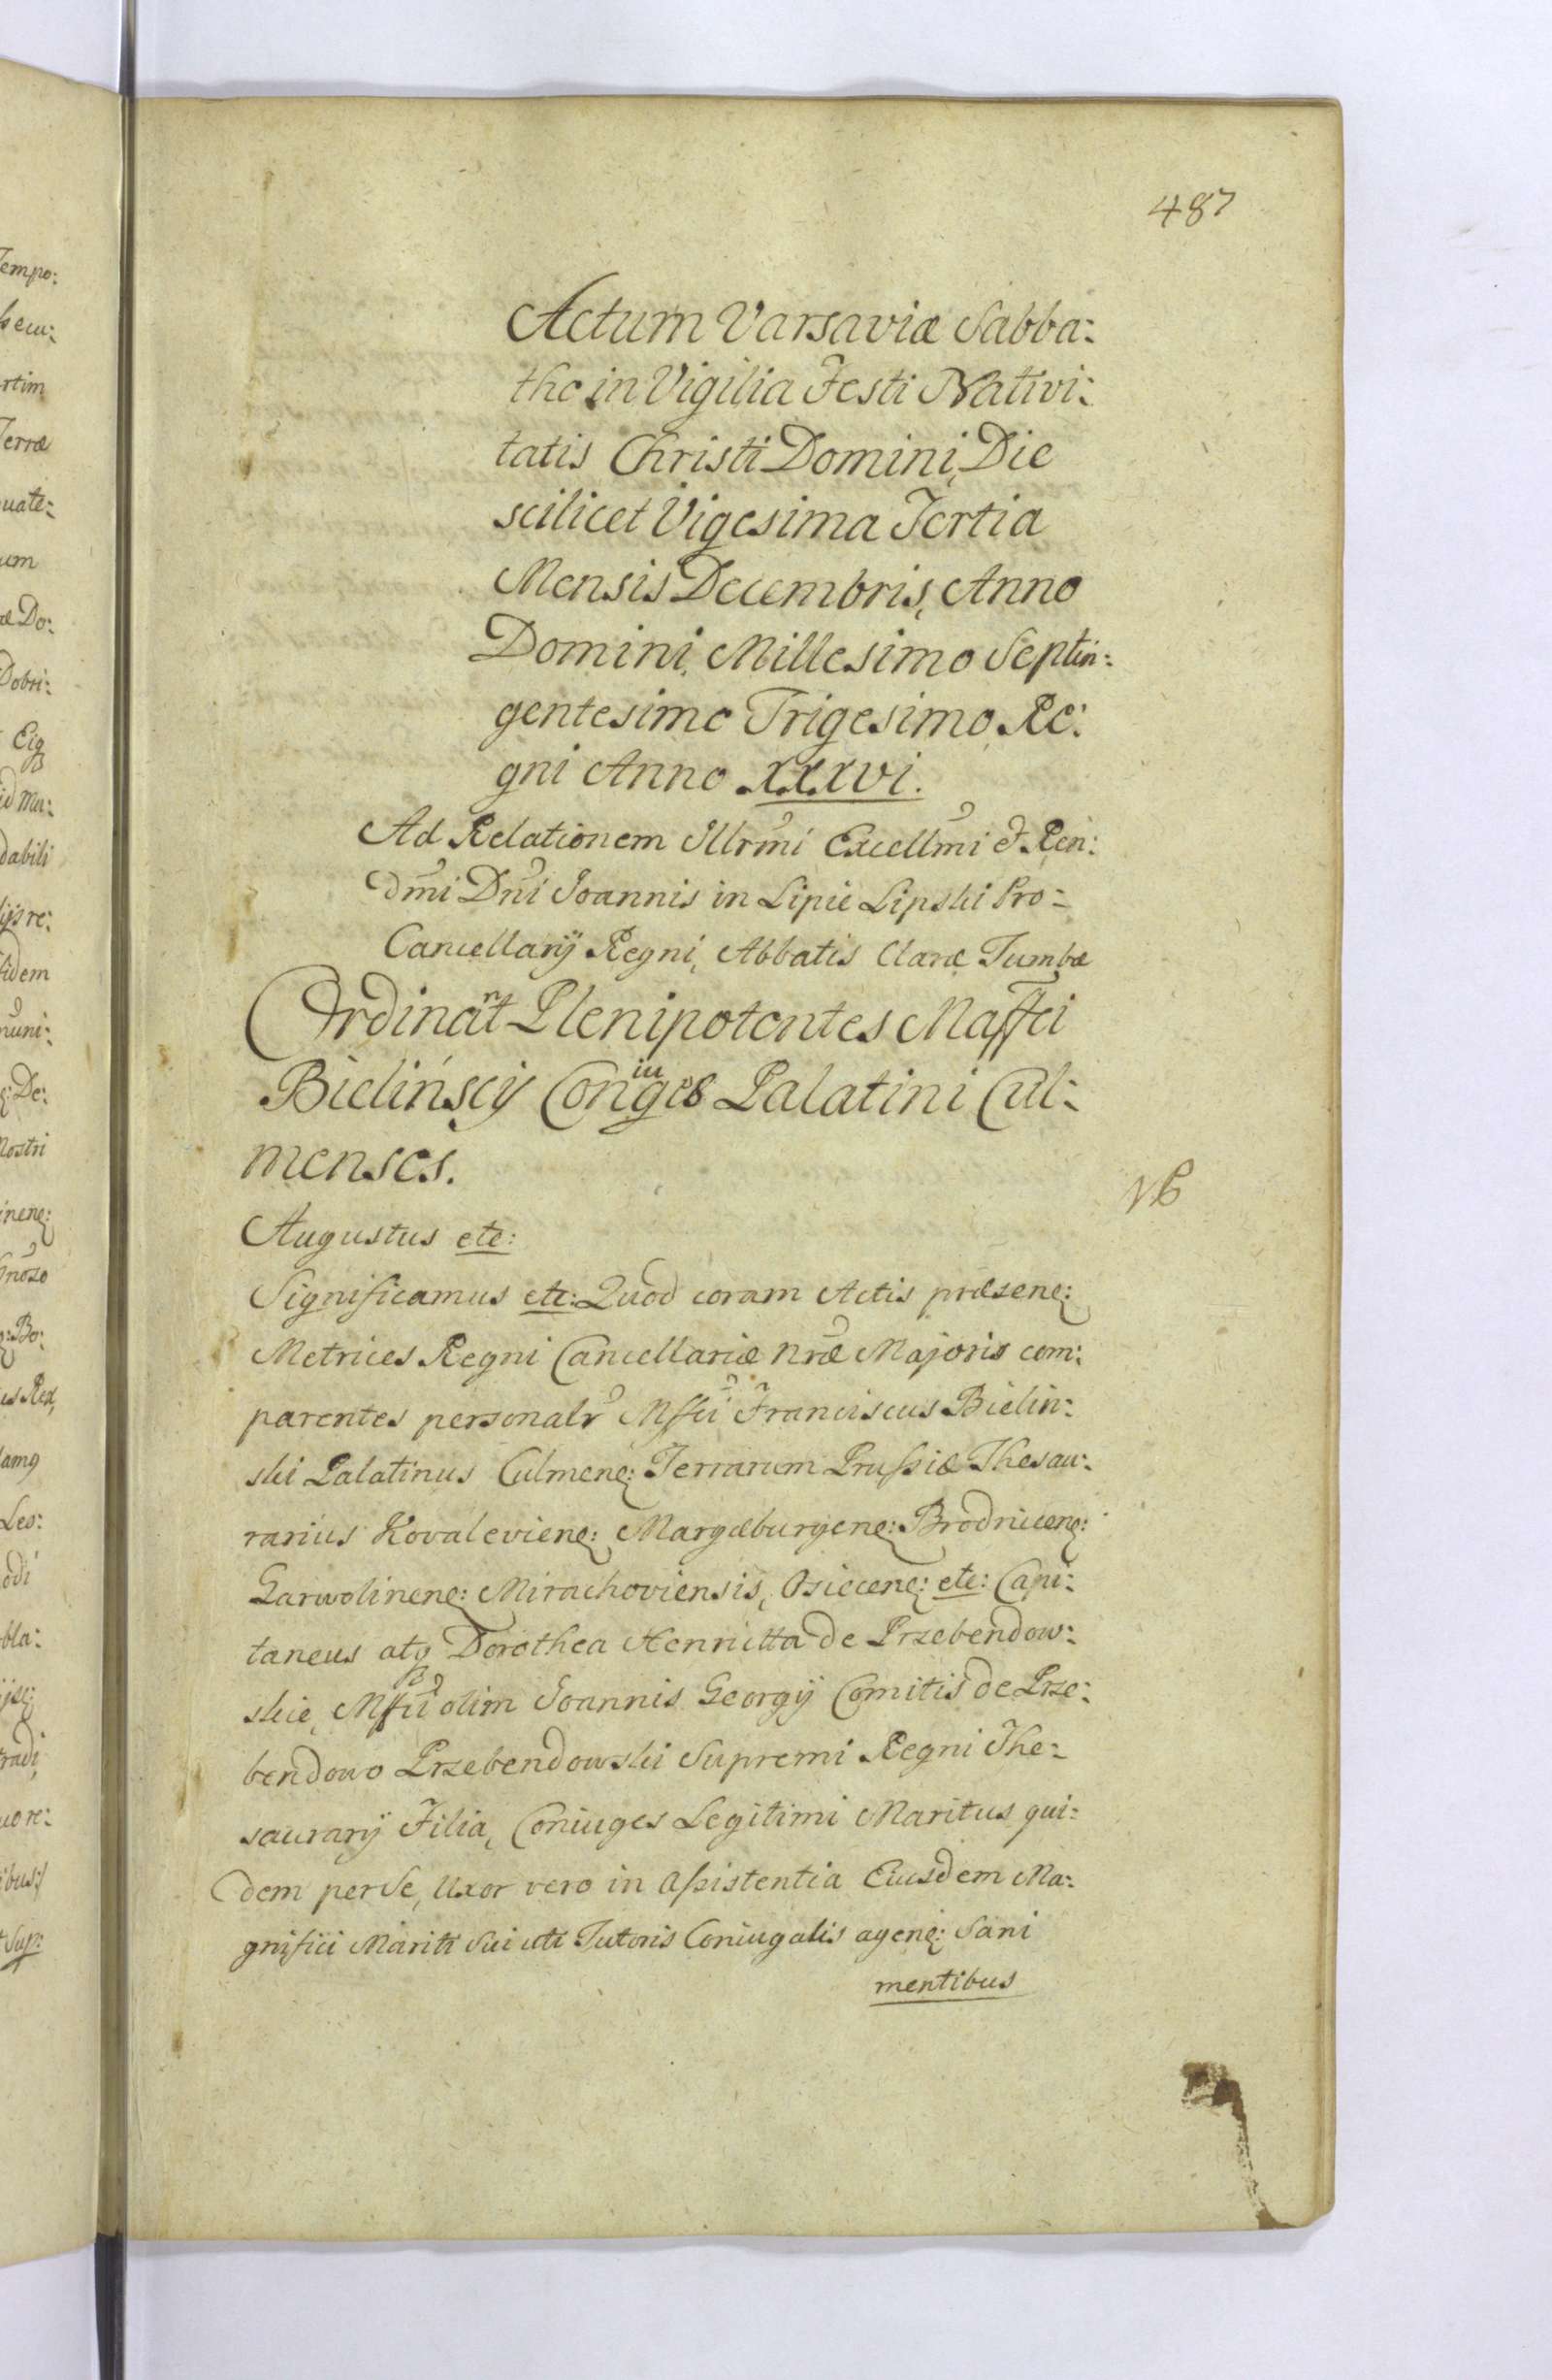 487
Actum Varsaviæ Sabba:
tho in Vigilia Festi Nativi:
tatis Christi Domini, Die
scilicet Vigesima Tertia
Mensis Decembris, Anno
Domini Millesimo Septin:
gentesimo Trigesimo Re:
gni Anno XXXVI.
Ad Relationem Illrmi Excellmi et Ren:
dmi Dni Joannis in Lipie Lipski Pro=
Cancellarÿ Regni, Abbatis Claræ Tumbæ
Ordinant Plenipotentes Maffci
Bielińscÿ Coniuges Palatini Cul:
menses.
NB
Augustus etc:
Significamus etc: Quod coram Actis præsenẹ:
Metrices Regni Cancellariæ Nræ Majoris com:
parentes personalr Mffci Franciscus Bielin:
ski Palatinus Culmenẹ: Terrarum Prussiæ Thesau:
rarius Kovalevienẹ: Margæburgenẹ: Brodnicenẹ:
Garwolinenẹ: Mirachoviensis, Osiecenẹ: etc: Capi:
taneus atq Dorothea Henrietta de Przebendow:
skie, Mffci olim Joannis Georgÿ Comitis de Prze:
bendowo Przebendowski Supremi Regni The=
saurarÿ Filia, Coniuges Legitimi Maritus qui:
dem per Se, Uxor vero in Assistentia Eiusdem Ma:
gnifici Mariti Sui uti Tutoris Coniugalis agenẹ: Sani
mentibus